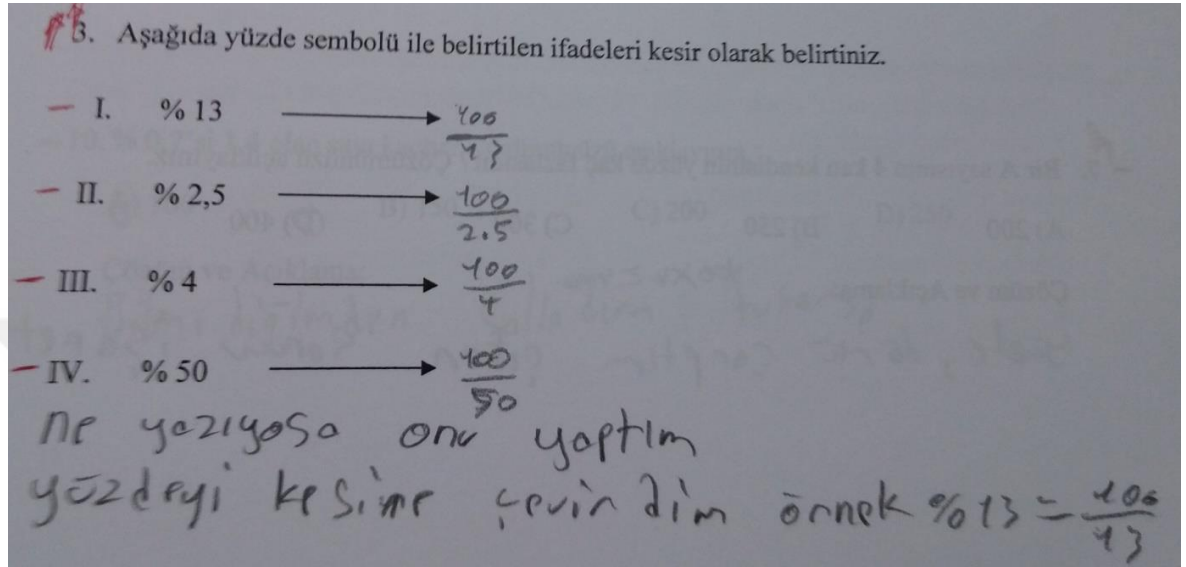 3. Aşağıda yüzde sembolü ile belirtilen ifadeleri kesir olarak belirtiniz.
I. % 13 → 100/13
II. % 2,5 → 100/2.5
III. % 4 → 100/4
IV. % 50 → 100/50
ne yazıyosa onu yaptım
yüzdeyi kesime çevirdim örnek %13 = 100/13